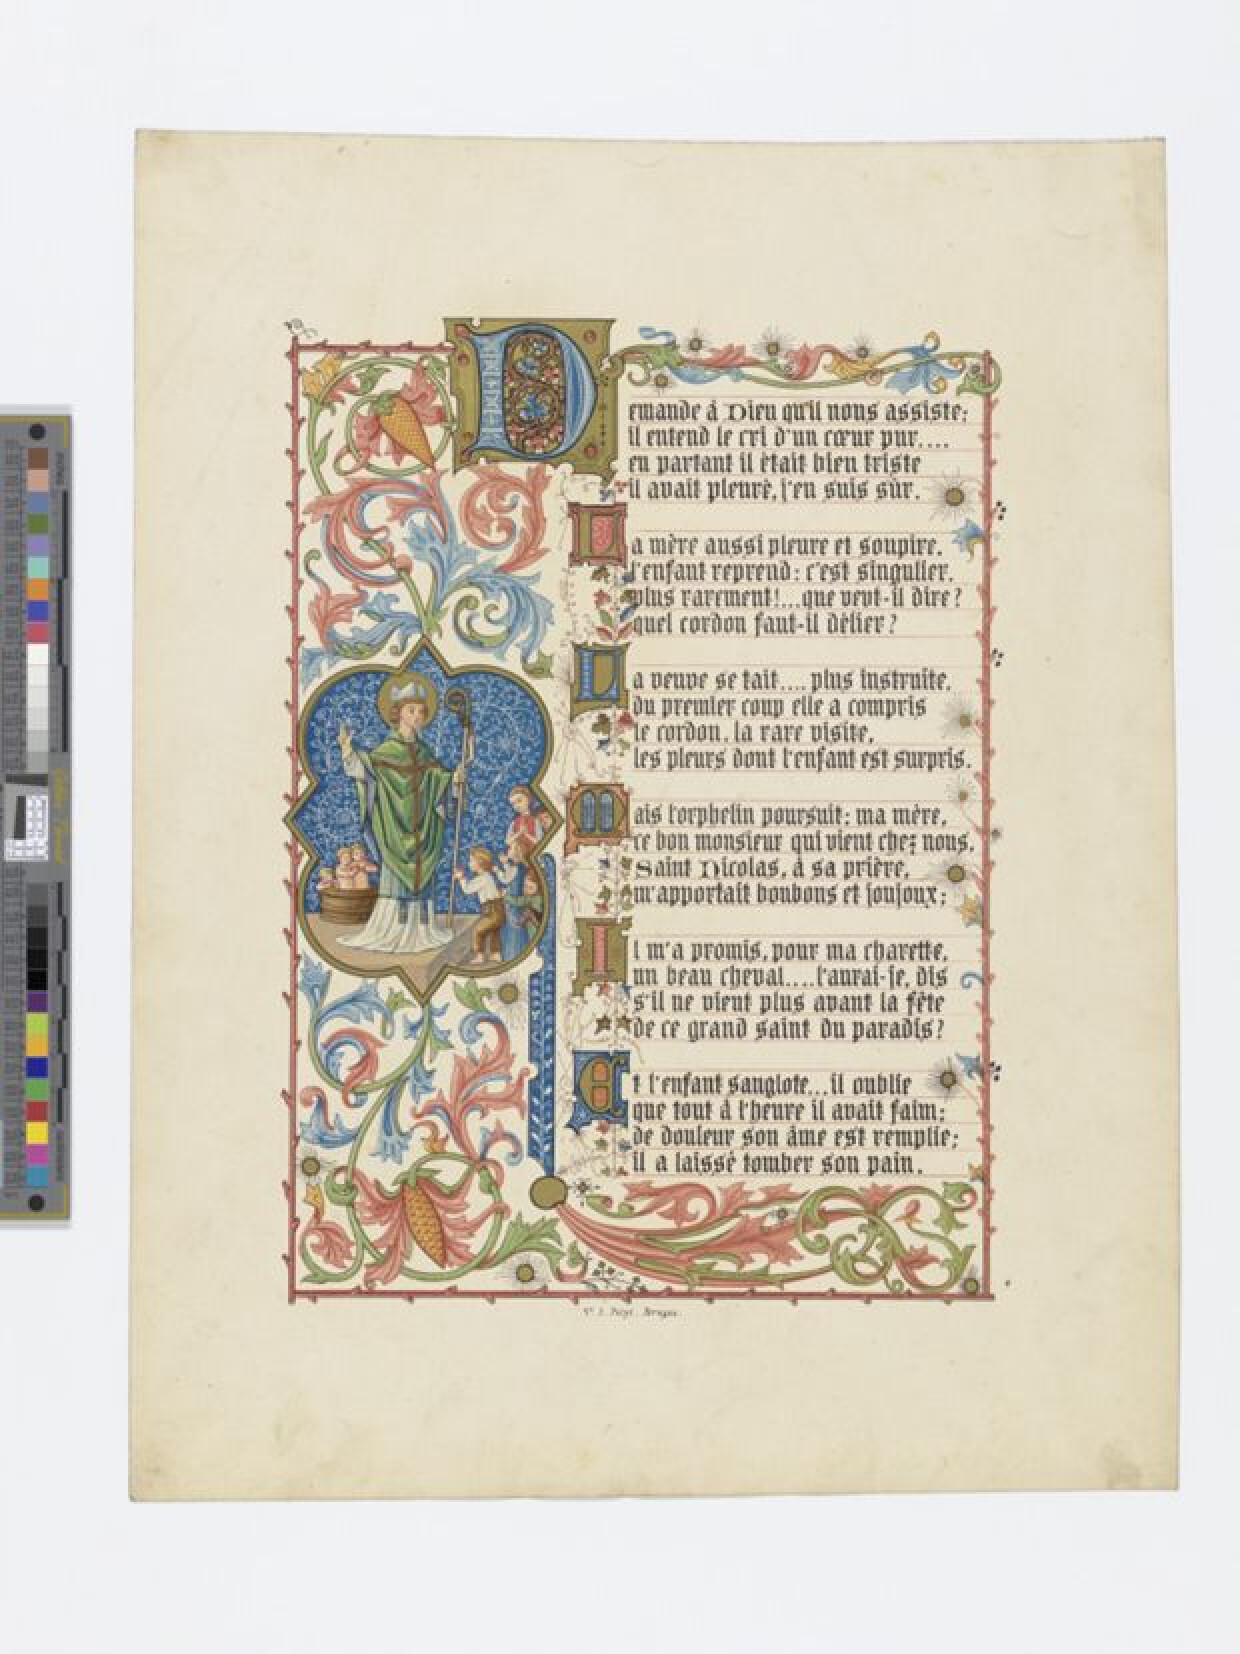 Demande à Dieu qu'il nous assiste;
il entend le cri d'un cœur pur....
en partant il était bien triste
il avait pleuré, j'en suis sûr.
La mère aussi pleure et soupire.
l'enfant reprend: c'est singulier.
plus rarement!...que veut-il dire?
quel cordon faut-il délier?
La veuve se tait.... plus instruite.
du premier coup elle a compris
le cordon, la rare visite,
les pleurs dont l'enfant est surpris.
Mais l'orphelin poursuit: ma mère,
ce bon monsieur qui vient chez nous,
Saint Nicolas, à sa prière,
m'apportait bonbons et joujoux;
Il m'a promis, pour ma charette,
un beau cheval....l'aurai-je, dis
s'il ne vient plus avant la fête
de ce grand saint du paradis?
Et l'enfant sanglote...il oublie
que tout à l'heure il avait faim;
de douleur son âme est remplie;
il a laissé tomber son pain.
Bruges.